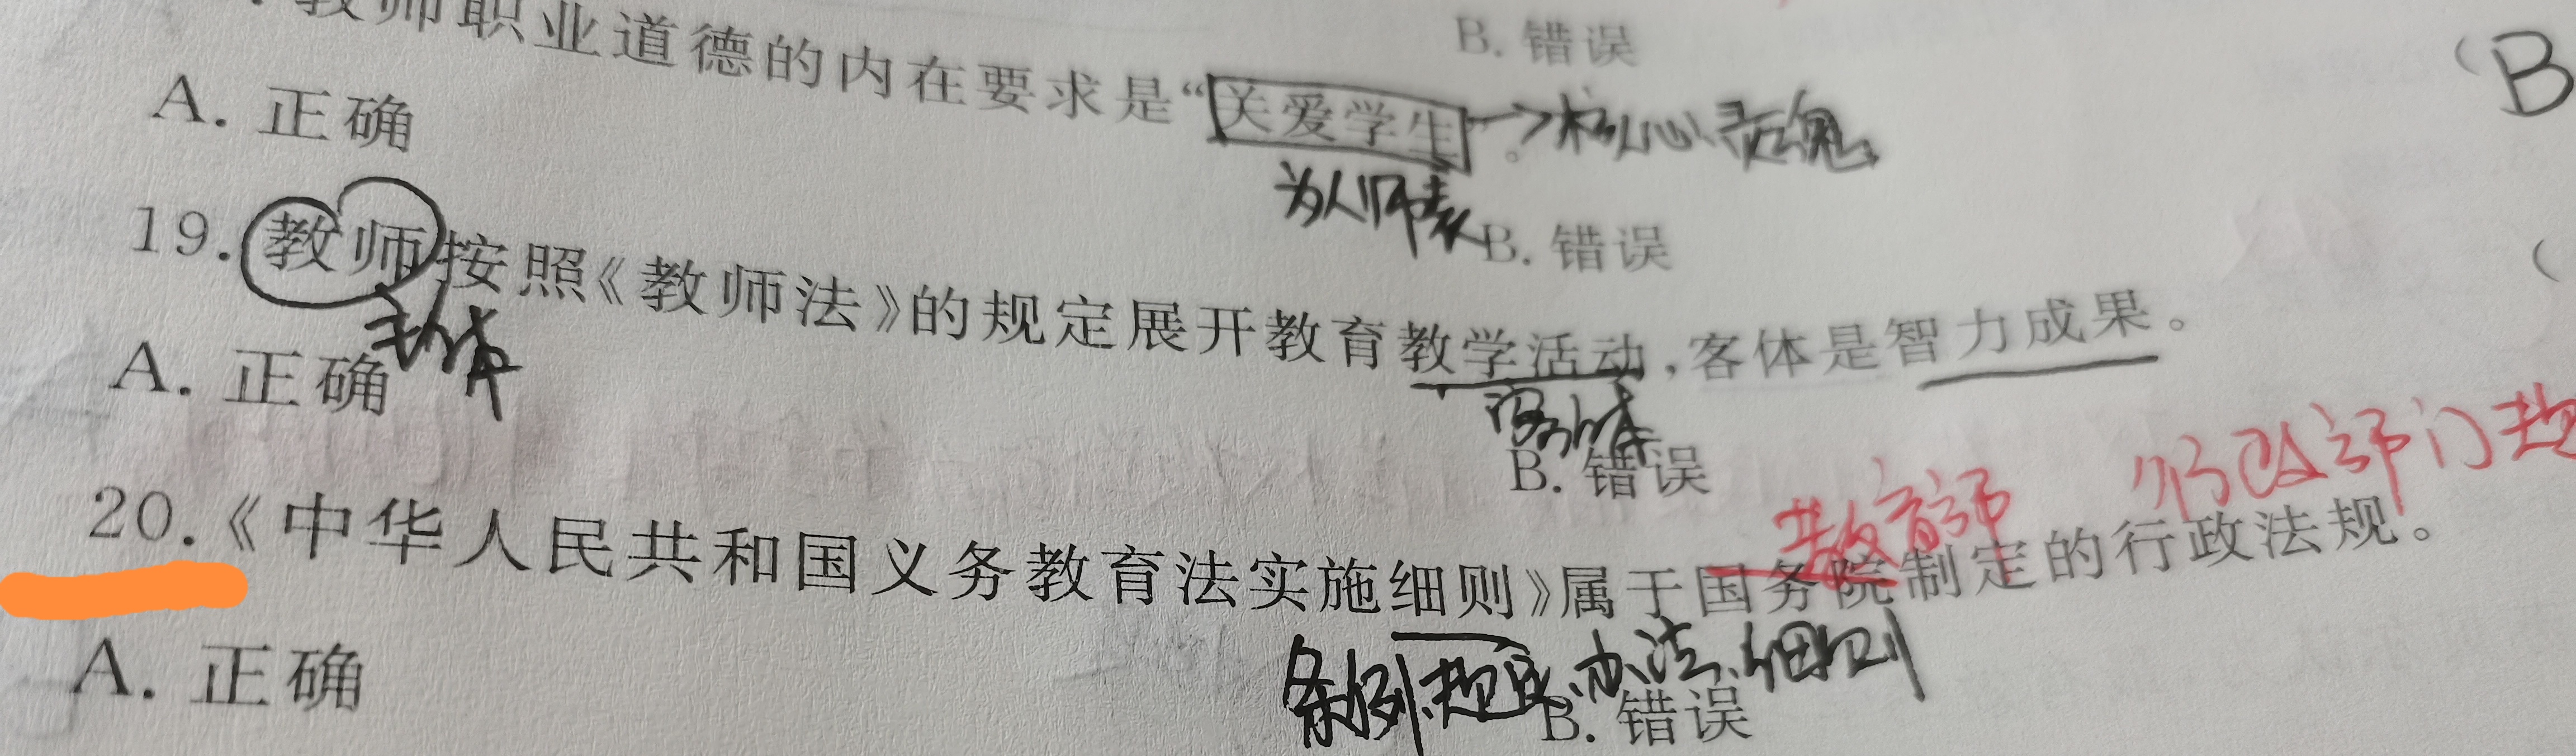 教师职业道德的内在要求是“关爱学生”。→核心、灵魂
为人师表
B. 错误
(B
A. 正确
B. 错误
(
19. 教师按照《教师法》的规定展开教育教学活动,客体是智力成果。
主体
A. 正确
B. 错误
教育部
20.《中华人民共和国义务教育法实施细则》属于国务院制定的行政法规。
条例、规定、办法、细则
A. 正确
B. 错误